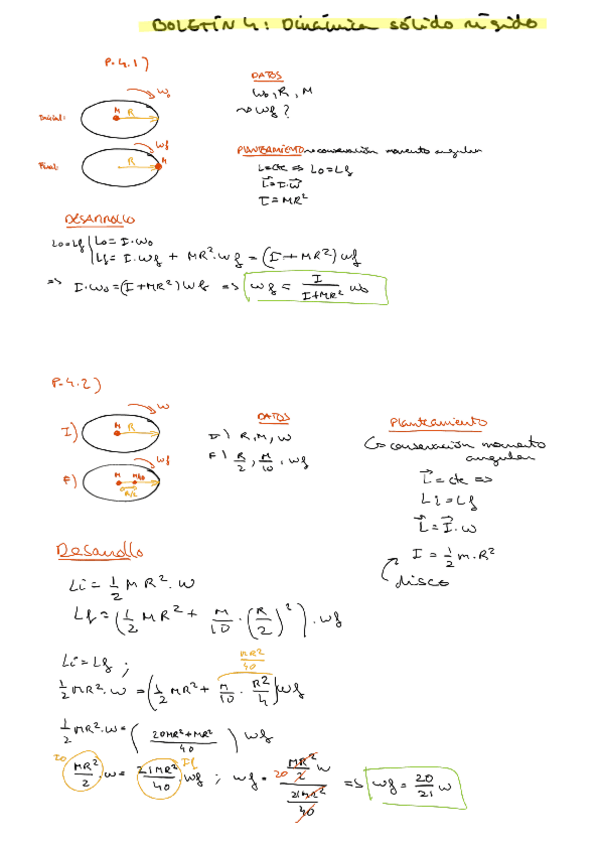 BOLETÍN 4: Dinámica sólido rígido
P.4.1)
DATOS
ω₀, R, M
~> ωf?
Inicial:
M R
ω₀
Final:
R M
ωf
PLANTEAMIENTO ~> conservación momento angular
L=cte => L₀=Lf
L⃗=I·ω⃗
I=MR²
DESARROLLO
L₀=Lf | L₀=I·ω₀
Lf= I·ωf + MR²·ωf = (I+MR²)ωf
=> I·ω₀=(I+MR²)ωf => ωf = I/(I+MR²) ω₀
P.4.2)
I)
M R
ω
F)
M M/10
R/2
ωf
DATOS
I) R, M, ω
F) R/2, M/10, ωf
Planteamiento
conservación momento
angular
L⃗=cte =>
Li=Lf
L⃗=I⃗·ω
I = 1/2 m·R²
disco
Desarollo
Li = 1/2 MR²·ω
Lf = (1/2 MR² + M/10·(R/2)²)·ωf
Li=Lf ;
MR²/40
1/2 MR²·ω = (1/2 MR² + M/10 · R²/4)ωf
1/2 MR²·ω = ((20MR²+MR²)/40) ωf
20 If
MR²/2·ω = 21MR²/40·ωf ; ωf = 20 (MR²/2 ω)/(21MR²/40) => ωf = 20/21 ω